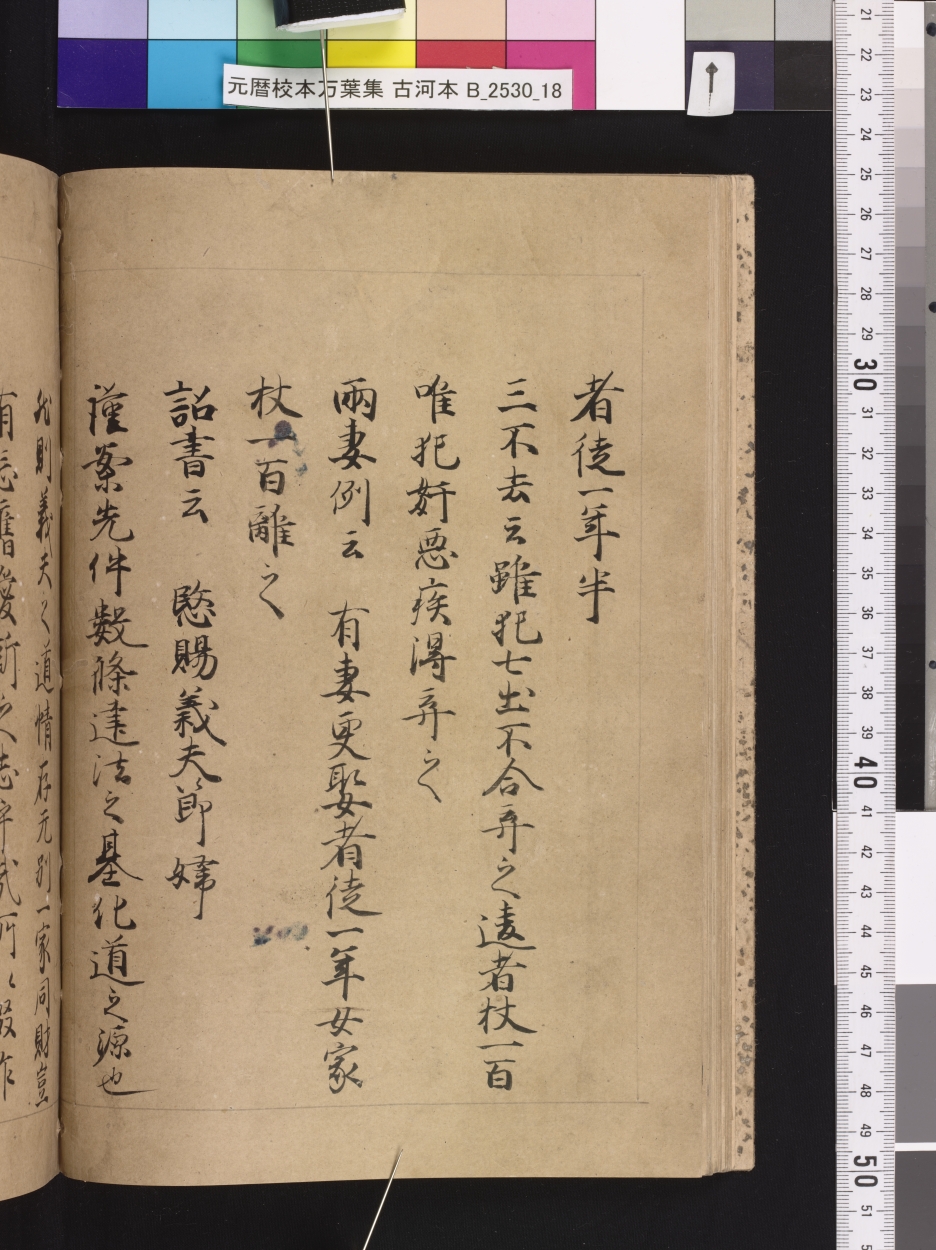 元暦校本万葉集 古河本 B_2530_18
者徒一年半
三不去云雖犯七出不合弃之違者杖一百
唯犯奸惡疾得弃之
兩妻例云 有妻更娶者徒一年女家
杖一百離之
詔書云 愍賜義夫節婦
謹案先件數條建法之基化道之源也
然則義夫之道情存无別一家同財豈
有忘舊愛新之志
21
22
23
24
25
26
27
28
29
30
31
32
33
34
35
36
37
38
39
40
41
42
43
44
45
46
47
48
49
50
51